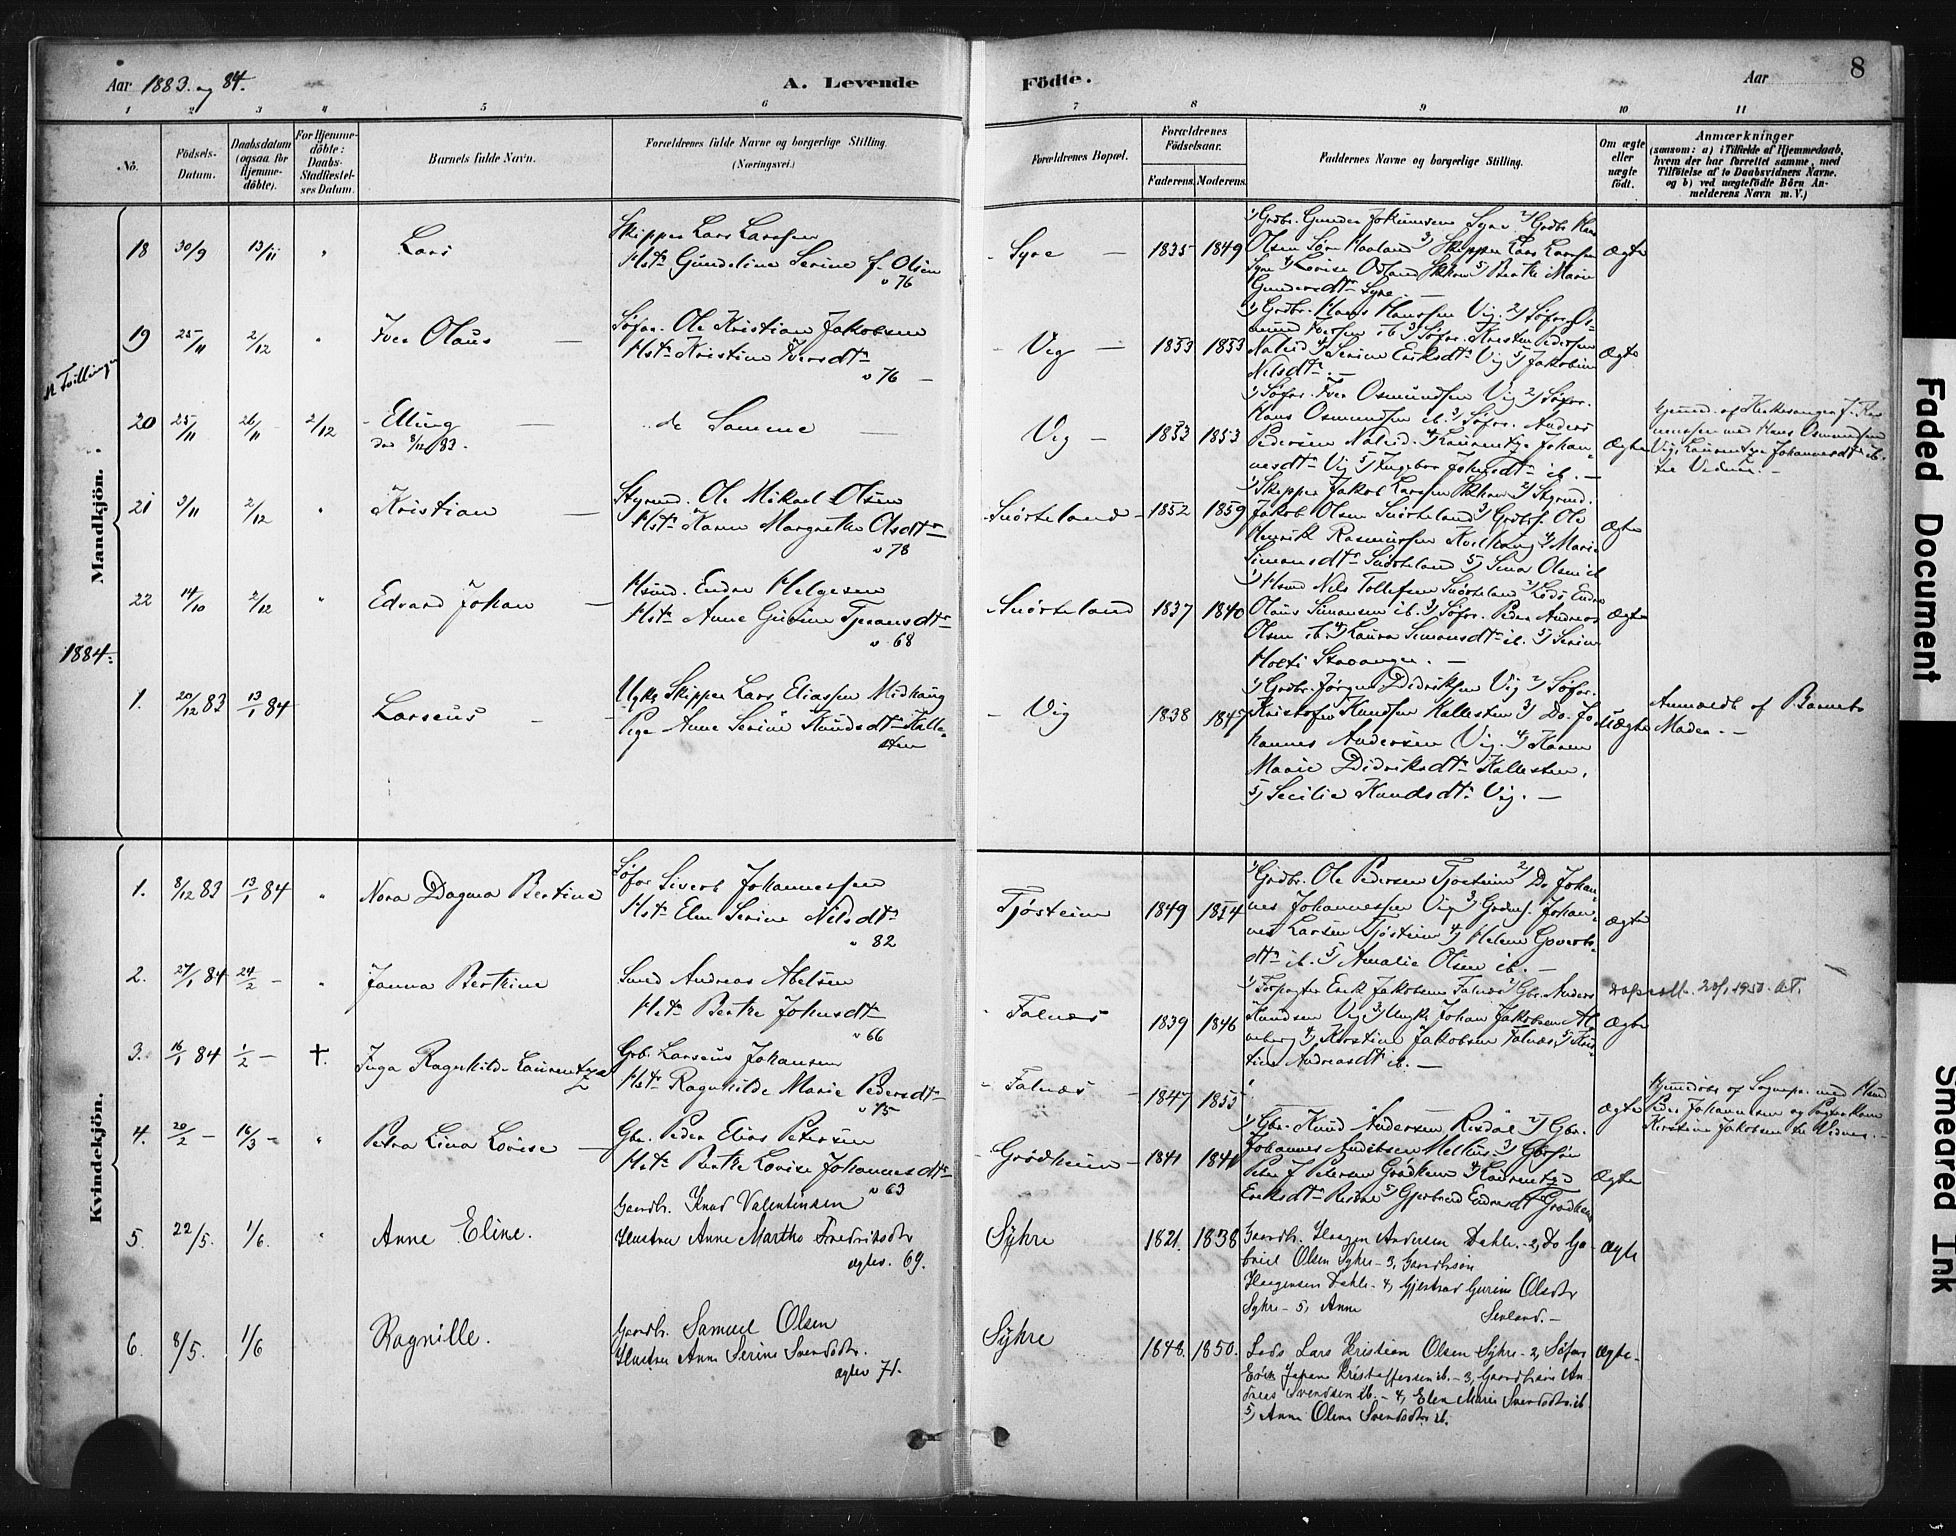 Aar 1883 og 84.
A. Levende
Födte.
Aar
8
1 2 3 4 5 6 7 8 9 10 11
No.
Födsels-
Datum.
Daabsdatum
(ogsaa for
Hjemme-
döbte).
For Hjemme-
döbte:
Daabs-
Stadfæstel-
ses Datum.
Barnets fulde Navn.
Forældrenes fulde Navne og borgerlige Stilling.
(Næringsvei.)
Forældrenes Bopæl.
Forældrenes
Födselsaar.
Faderens. Moderens.
Faddernes Navne og borgerlige Stilling.
Om ægte
eller
uægte
födt.
Anmærkninger
(saasom: a) i Tilfælde af Hjemmedaab,
hvem der har forrettet samme, med
Tilföielse af to Daabsvidners Navne.
og b) ved uægtefödte Börn An-
melderens Navn m. V.)
Mandkjön.
18 30/9 13/11 " Lars
Skipper Lars Larssen
Hst. Gundeline Serine f. Olsen
v 76
Syre 1835 1849
1) Grdbr. Gunder Jokumsen Syre 2) Grdbr. Hans
Olsen Søre Haaland 3) Skipper Lars Larssen
Syre 4) Lovise Odland 5) Berthe Marie
Gundersdtr Syre
Ægte
Tvillinger
19 25/11 2/12 " Iver Olaus
Søfor. Ole Kristian Jakobsen
Hst. Kristine Iversdtr
v 76
Vig 1853 1853
1) Grdbr. Hans Hanssen Vig 2) Søfor. Os-
mund Iversen ib. 3) Søfor. Kristen Pedersen
4) Serine Eriksdtr Vig 5) Jakobine
Nilsdtr
Ægte
20 25/11 26/11 2/12 Elling
død 8/12 83.
de Samme
Vig 1853 1853
1) Søfor. Iver Osmundsen Vig 2) Søfor.
Hans Osmundsen ib. 3) Søfor. Anders
Pedersen 4) Laurentze Johan-
nesdtr Vig 5) Ingebor Johnsdtr ib.
Ægte
Hjemd. af Kirkesanger J.
med Hans Osmundsen
Vig, Laurentze Johannesdtr ib.
til Vidner.
21 3/11 2/12 " Kristian
Styrmd. Ole Mikael Olsen
Hst. Karen Margrethe Olsdtr
v 78
Snørteland 1852 1859
1) Skipper Jakob Larssen 2) Styrmd.
Jakob Olsen Snørteland 3) Grdbrs. Ole
Henrik Rasmussen 4) Marie
Simonsdtr Snørteland 5) Sina Olsen ib
Ægte
22 14/10 2/12 " Edvard Johan
Hsmd. Endre Helgesen
Hst. Anne Gurine Tjeransdtr
v 68
Snørteland 1837 1840
1) Hsmd Nils Tollefsen Snørteland 2) Lods Endre
Olaus Simonsen ib. 3) Søfor. Peder Andreas
Olsen ib. 4) Laura Simonsdtr ib. 5) Serine
Stavanger.
Ægte
1884:
1. 20/12 83 13/1 84 Larseus
Ugkl Skipper Lars Eliassen Midhaug
Pige Anne Serine Knudsdtr Kalle-
sten
Vig 1838 1847
1) Grdbr. Jørgen Didriksen Vig 2) Søfor.
Kristofer Knudsen Kallesten 3) Do. Jo-
hannes Andersen Vig. 4) Karen
Marie Didriksdtr Kallesten.
5) Secilie Knudsdtr Vig.
Uægte
Anmeldt af Barnets
Moder.
Kvindekjön.
1. 8/12 83 13/1 84 " Nora Dagma Bertine
Søfor Sivert Johannessen
Hst. Elen Serine Nilsdtr
" 82
Tjøsteim 1849 1854
1) Grdbr. Ole Pedersen Tjøsteim 2) Do Johan-
nes Johannessen Vig 3) Grdms. Johan-
nes Larsen Tjøsteim 4) Helene Goverts-
dtr ib. 5) Amalie Olsen ib.
Ægte
2. 27/1 84 24/2 - " Janna Berthine
Smed Andreas Abelsen
Hst. Berthe Johnsdtr
" 66
Falnæs 1839 1846
1) Forpagter Erik Jakobsen Falnæs 2) Gbr. Anders
Knudsen Vig 3) Ungk. Johan Jakobsen
4) Kirstine Jakobsen Falnæs 5) Kris-
tine Andreasdtr ib.
Ægte
1950
3. 16/1 84 1/2 - †. Inga Ragnhilde Laurentze
Grb. Larseus Johansen
Hst. Ragnhilde Marie Pedersdtr
v 75
Falnæs 1847 1855
"
Ægte
Hjemdøbt af Sognepr. med
Peder Johannesen og
Kirstine Jakobsen til Vidner.
4. 20/2 - 16/3 - " Petra Lina Lovise
Gbr. Peder Elias Petersen
Hst. Berthe Lovise Johannesdtr
" 63
Grødheim 1841 1841
1) Gbr. Knud Andersen 2) Gbr.
Johannes Andersen Melhus 3) Gbrsøn
Peter J Petersen Grødheim 4) Laurentze
Eriksdtr 5) Gjertrud Endresdtr Grødheim
Ægte
5. 22/5. 1/6. " Anne Eline.
Gaardbr. Knud Valentinsen
Hustru Anne Martha Fredriksdtr
ægtev. 69.
Sÿhre 1821. 1838
Gaardbr. Haagen Andersen Dahle. - 2, Do Ga-
briel Olsen Syhre - 3, Gaardbrsøn
Haagensen Dahle - 4, Gjertrud Gurine Olsdtr
Syhre - 5, Anne
Ægte
6. 8/5. 1/6 Ragnille.
Gaardbr. Samuel Olsen
Hustru Anne Serine Svendsdtr.
ægtev 71.
Sÿhre 1848. 1850.
Lods Lars Kristian Olsen Syhre - 2, Søfar
Erik Kristoffersen ib. - 3, Gaardbrsøn An-
dreas Svendsen ib. - 4, Elen Marie Svendsdtr. ib
5) Anne Oline Svendsdtr. ib.
Ægte
Faded Document
Smeared Ink